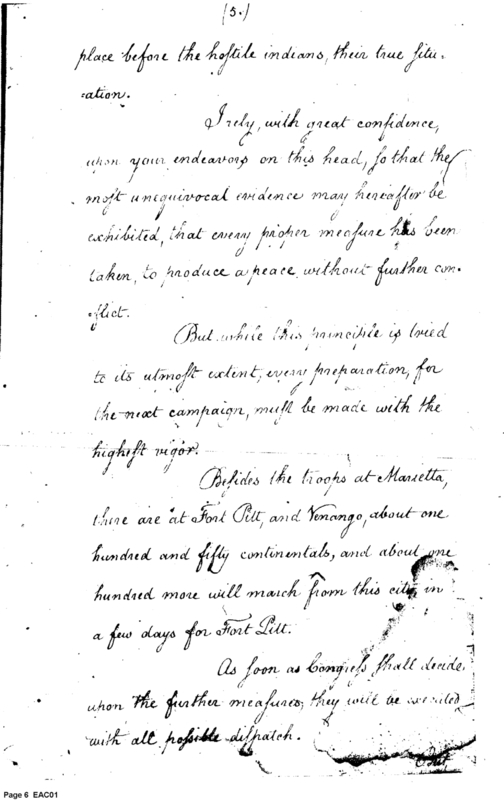 (5.)
place before the hostile indians, their true situ-
ation.
I rely, with great confidence,
upon your endeavors on this head, so that the
most unequivocal evidence may hereafter be
exhibited, that every proper measure has been
taken, to produce a peace without further con-
flict.
But while this principle is tried
to its utmost extent, every preparation, for
the next campaign, must be made with the
highest vigor.
Besides the troops at Marietta,
there are at Fort Pitt, and Venango, about one
hundred and fifty continentals, and about one
hundred more will march from this city in
a few days for Fort Pitt.
As soon as Congress shall decide
upon the further measures, they will be executed
with all possible dispatch.
Page 6 EAC01